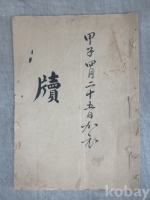 甲子四月二十五日
牘
kobay